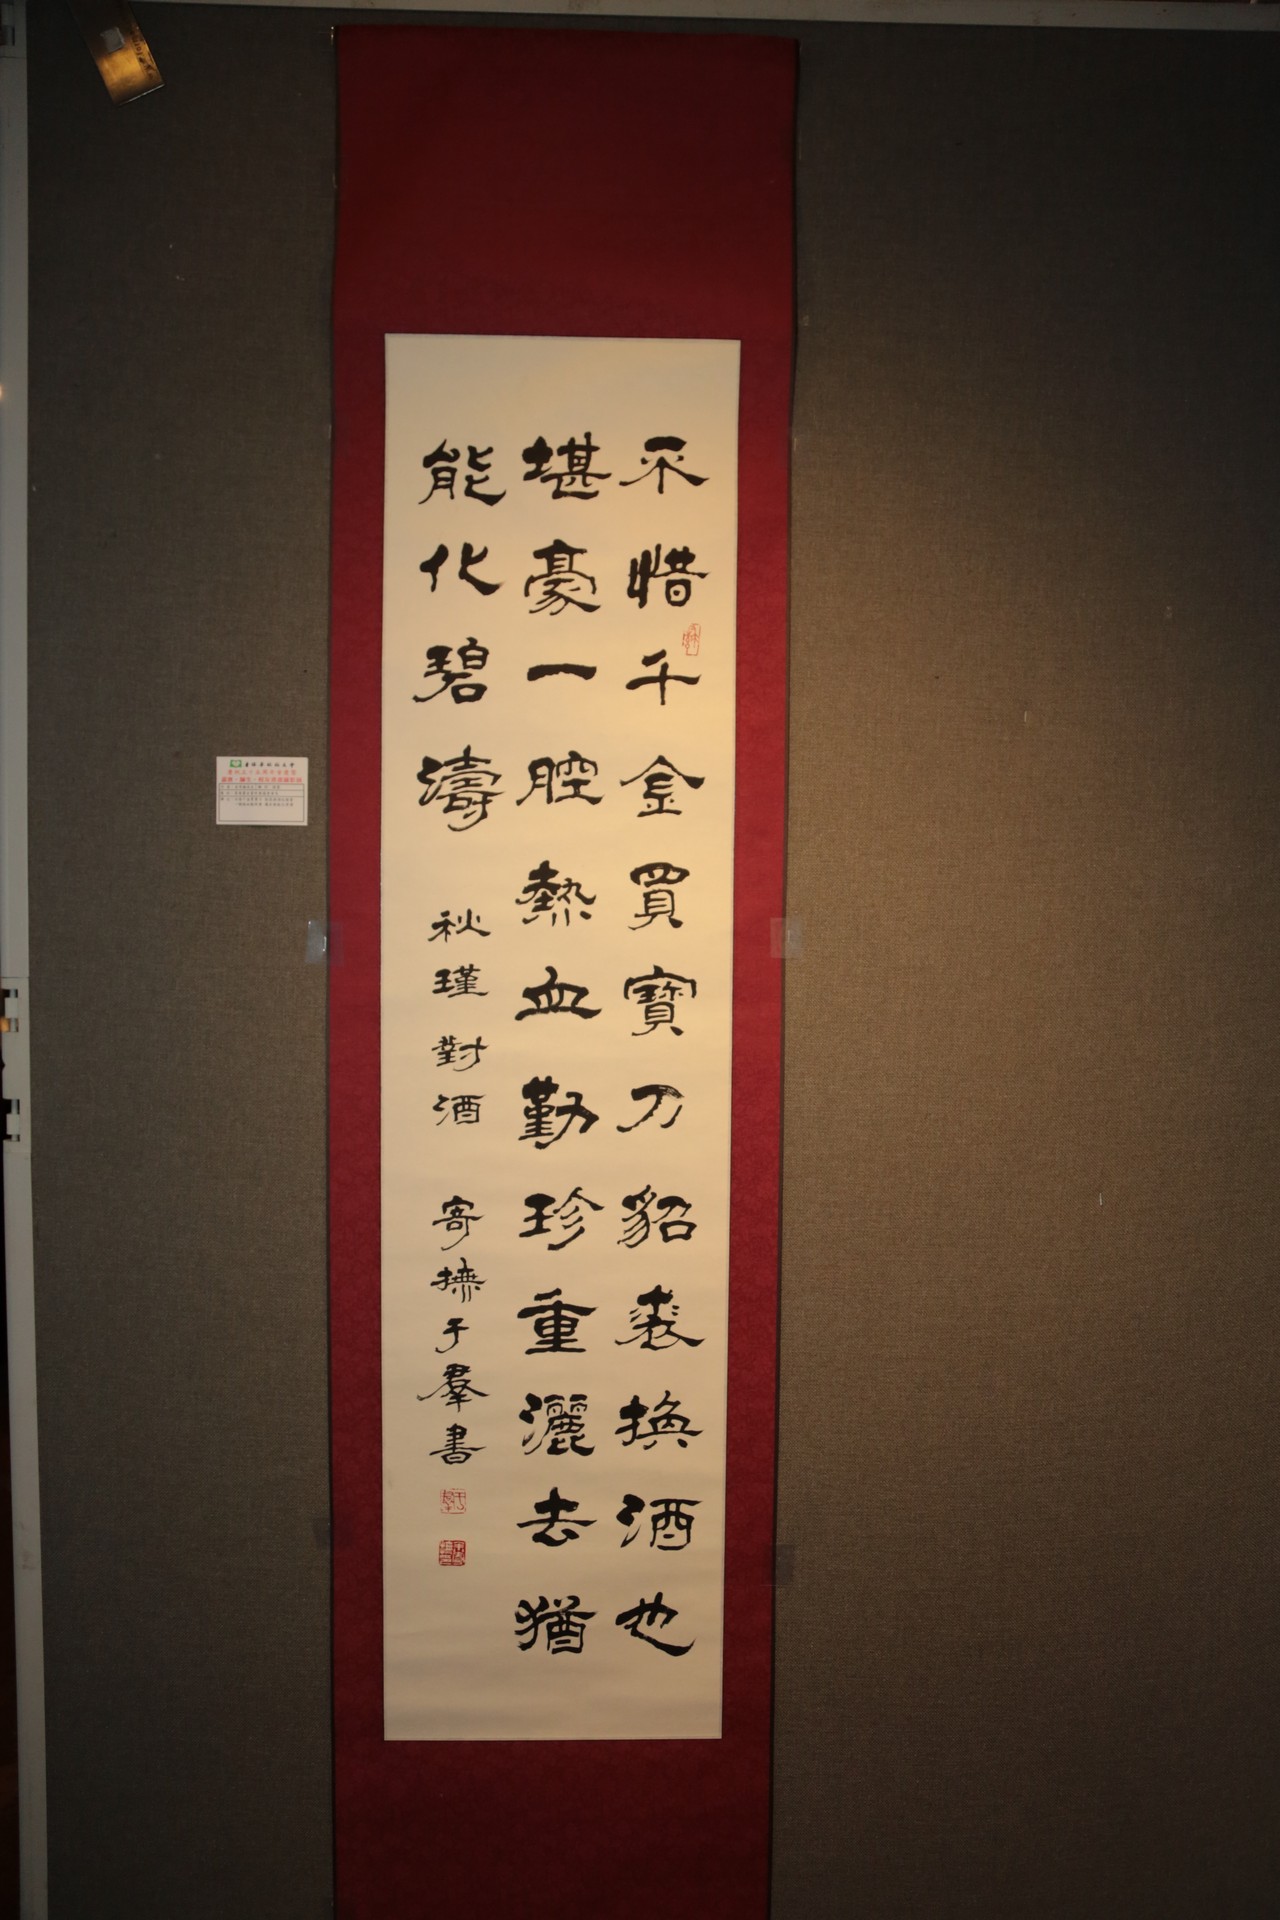 不惜千金買寶刀貂裘換酒也
堪豪一腔熱血勤珍重灑去猶
能化碧濤
秋瑾對酒
寄撫于羣書